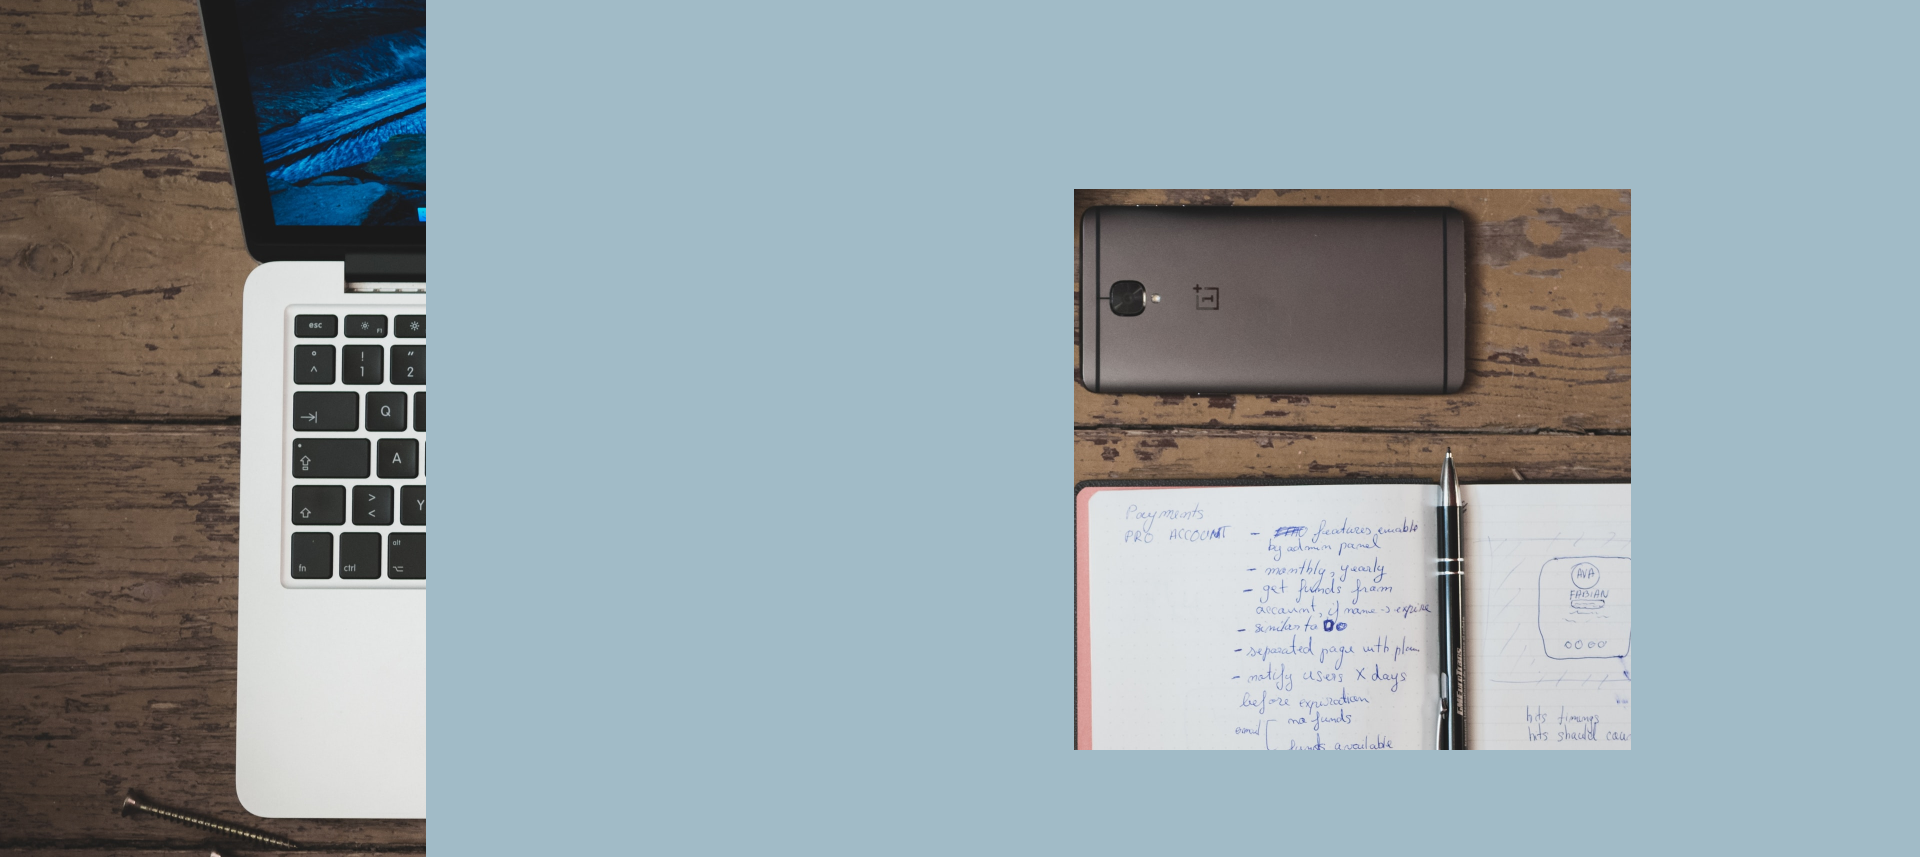 esc
F1
° ! "
^ 1 2
Q
A
> Y
<
alt
fn ctrl
Payments
PRO ACCOUNT - features enable
by admin panel
- monthly, yearly
- get funds from
account, if name -> expire
- similar to
- separated page with plan
- notify users X days
before expiration
email no funds
funds available
AVA
FABIAN
hits timings
hits should